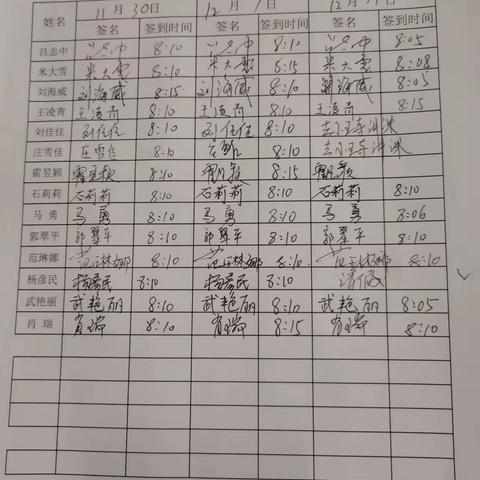 11月30日 12月1日
姓名 签名 签到时间 签名 签到时间 签名 签到时间
吕志中 8:10 8:10 8:05
米大雪 米大雪 8:10 米大雪 8:15 米大雪 8:08
刘海威 刘海威 8:15 刘海威 8:10 刘海威 8:05
王凌青 王凌青 8:10 王凌青 8:10 王凌青 8:15
刘佳佳 刘佳佳 8:10 刘佳佳 8:10
庄雪佳 庄雪佳 8:10 8:10
霍昱颖 霍昱颖 8:10 8:15 8:10
石莉莉 石莉莉 8:10 石莉莉 8:10 石莉莉 8:10
马 勇 马勇 8:10 马勇 8:10 马勇 8:06
郭翠平 郭翠平 8:10 郭翠平 8:10 郭翠平 8:10
范琳娜 范琳娜 8:10 范琳娜 8:10 范琳娜 8:10
杨彦民 杨彦民 8:10 杨彦民 8:10 请假
武艳丽 武艳丽 8:10 武艳丽 8:10 武艳丽 8:05
肖 瑞 肖瑞 8:10 肖瑞 8:15 肖瑞 8:10